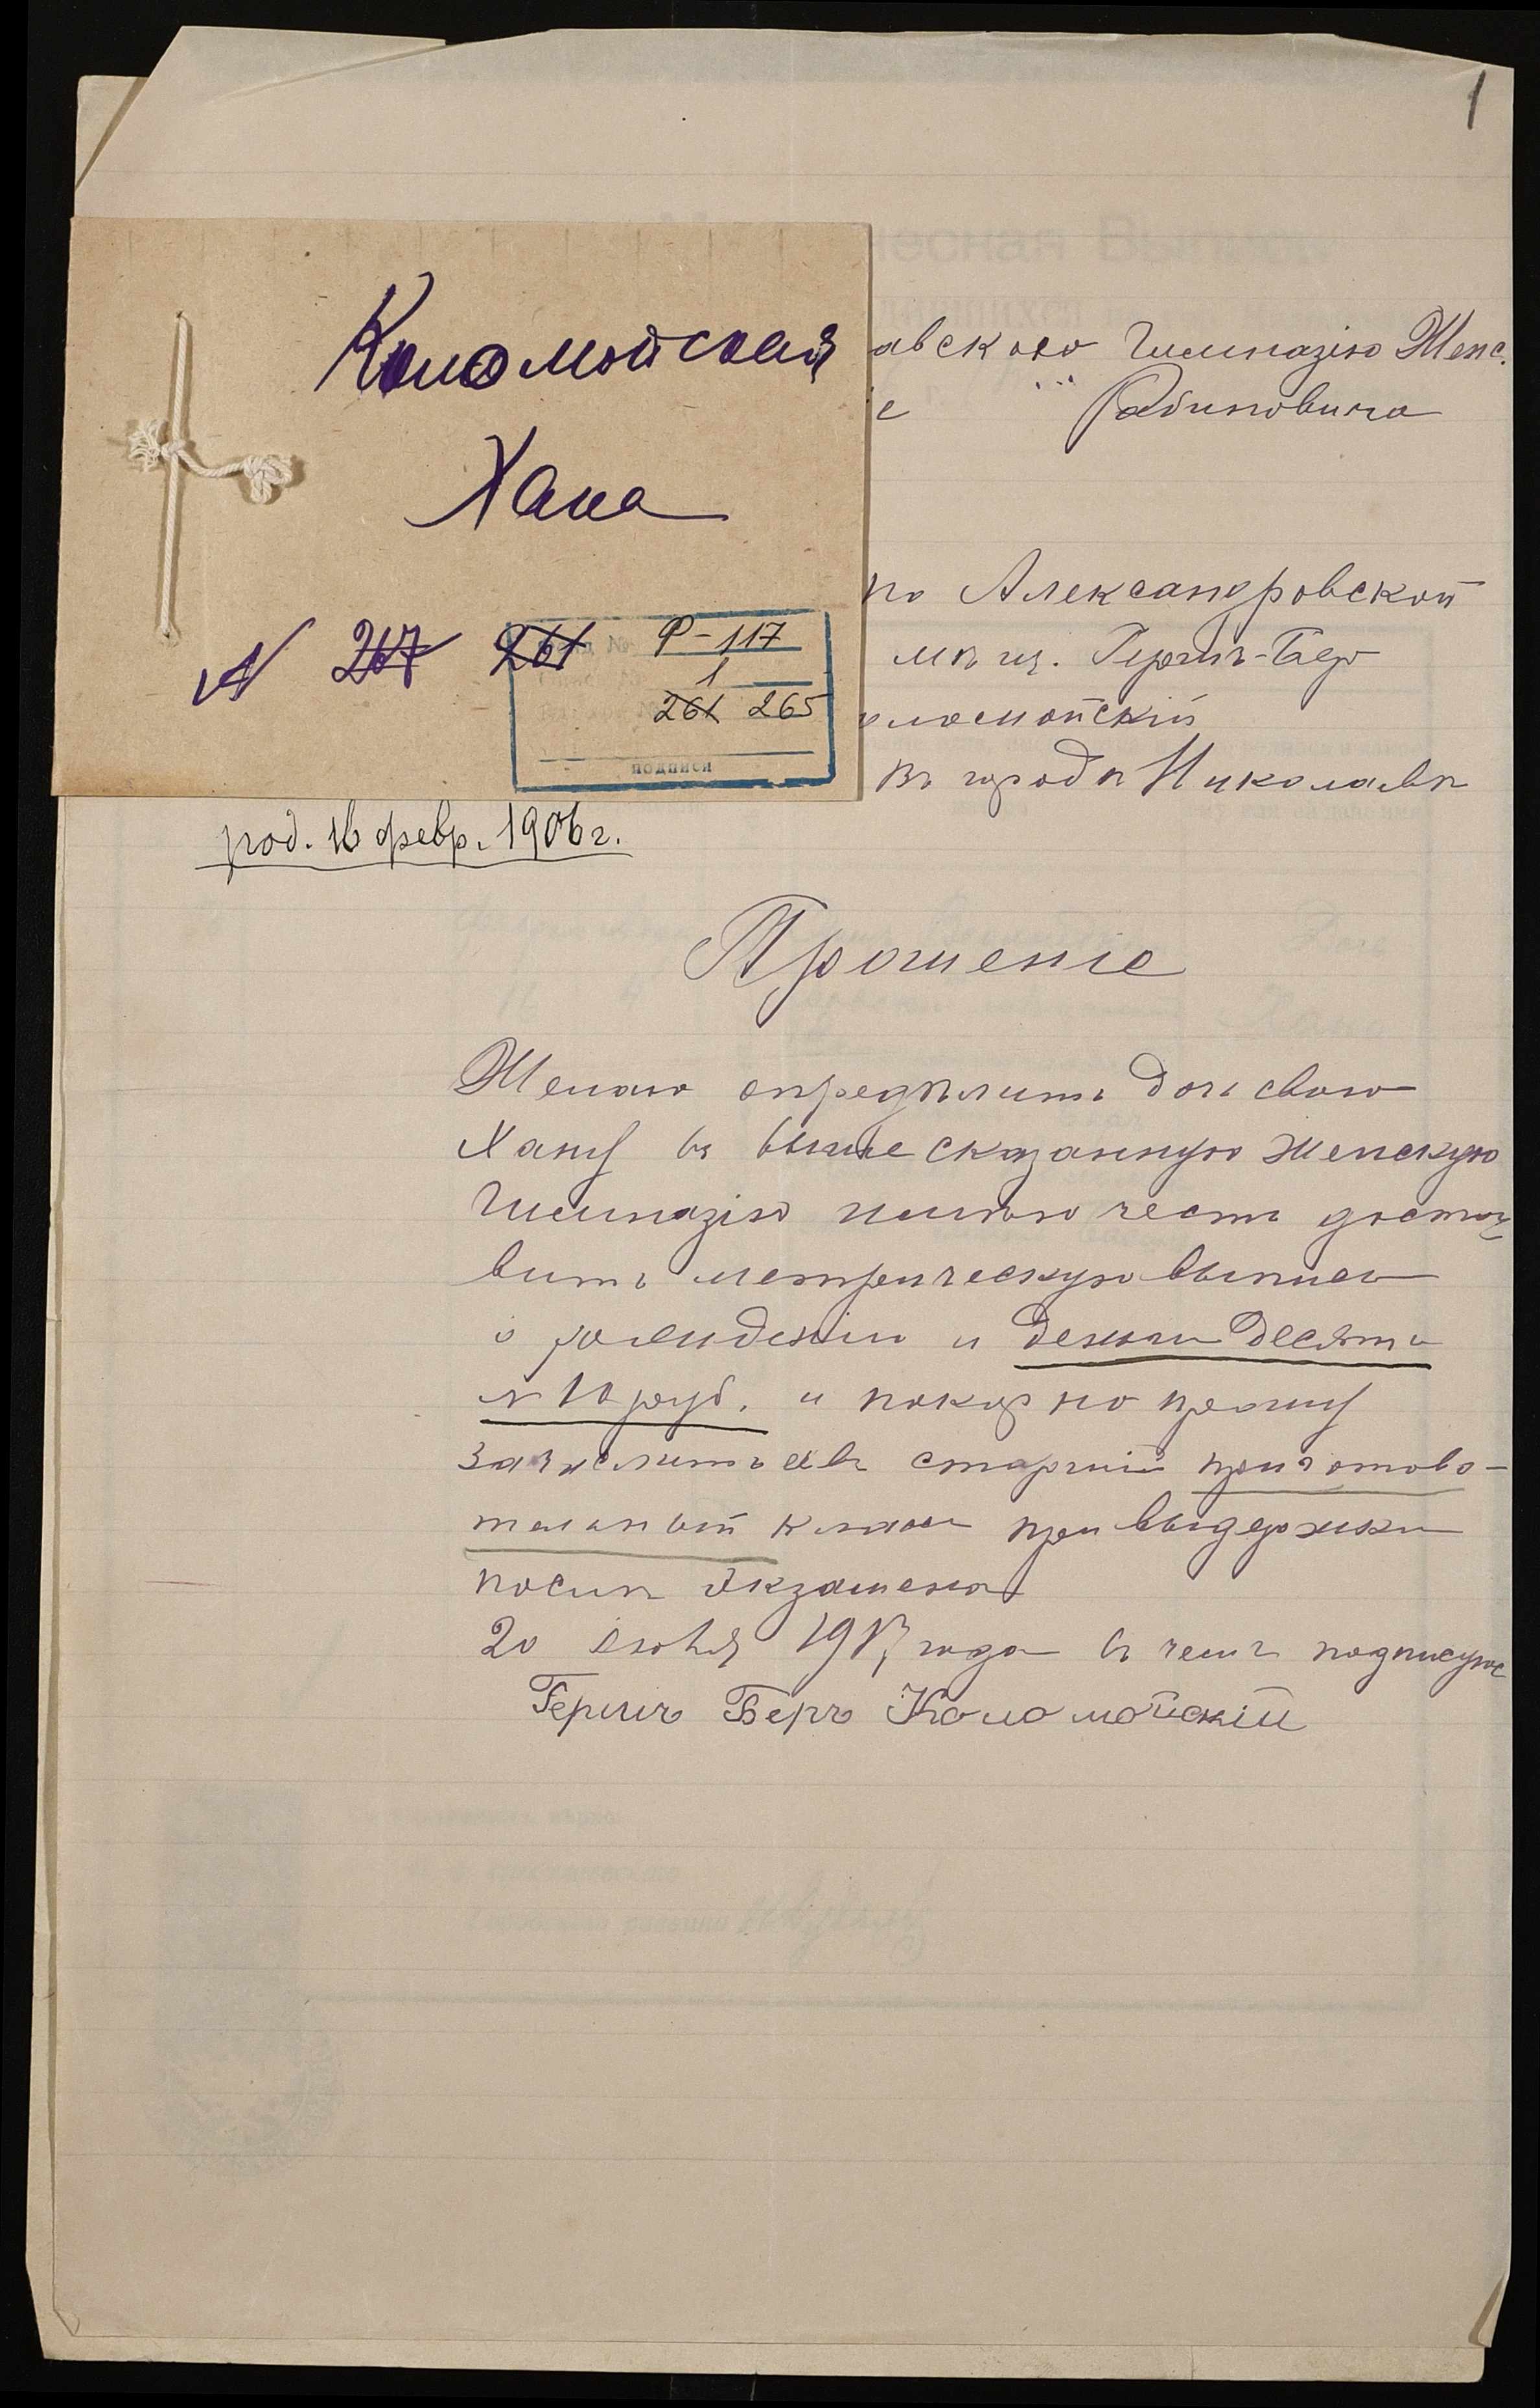 1
Коломойская
Хана
N 267 261
Ф-117
1
261 265
подписи
авскою Гимназiю Женс.
е Рабиновича
по Александровской
Гершъ-Бер
оломойскiй
въ городѣ Николаевѣ
род. 16 февр. 1906 г.
Прошенiе
Желаю определить дочь свою
Хану въ выше сказанную женскую
Гимназiю имѣю честь доста
вить метрическую выпись
о рождении и деньги десять
10 руб. и покорно прошу
зачислить ея въ старшiй приготово-
тельный классъ при выдержки
послѣ Экзамена
20 1913 года въ чемъ подписуюс
Гершъ Беръ Коломойскiй